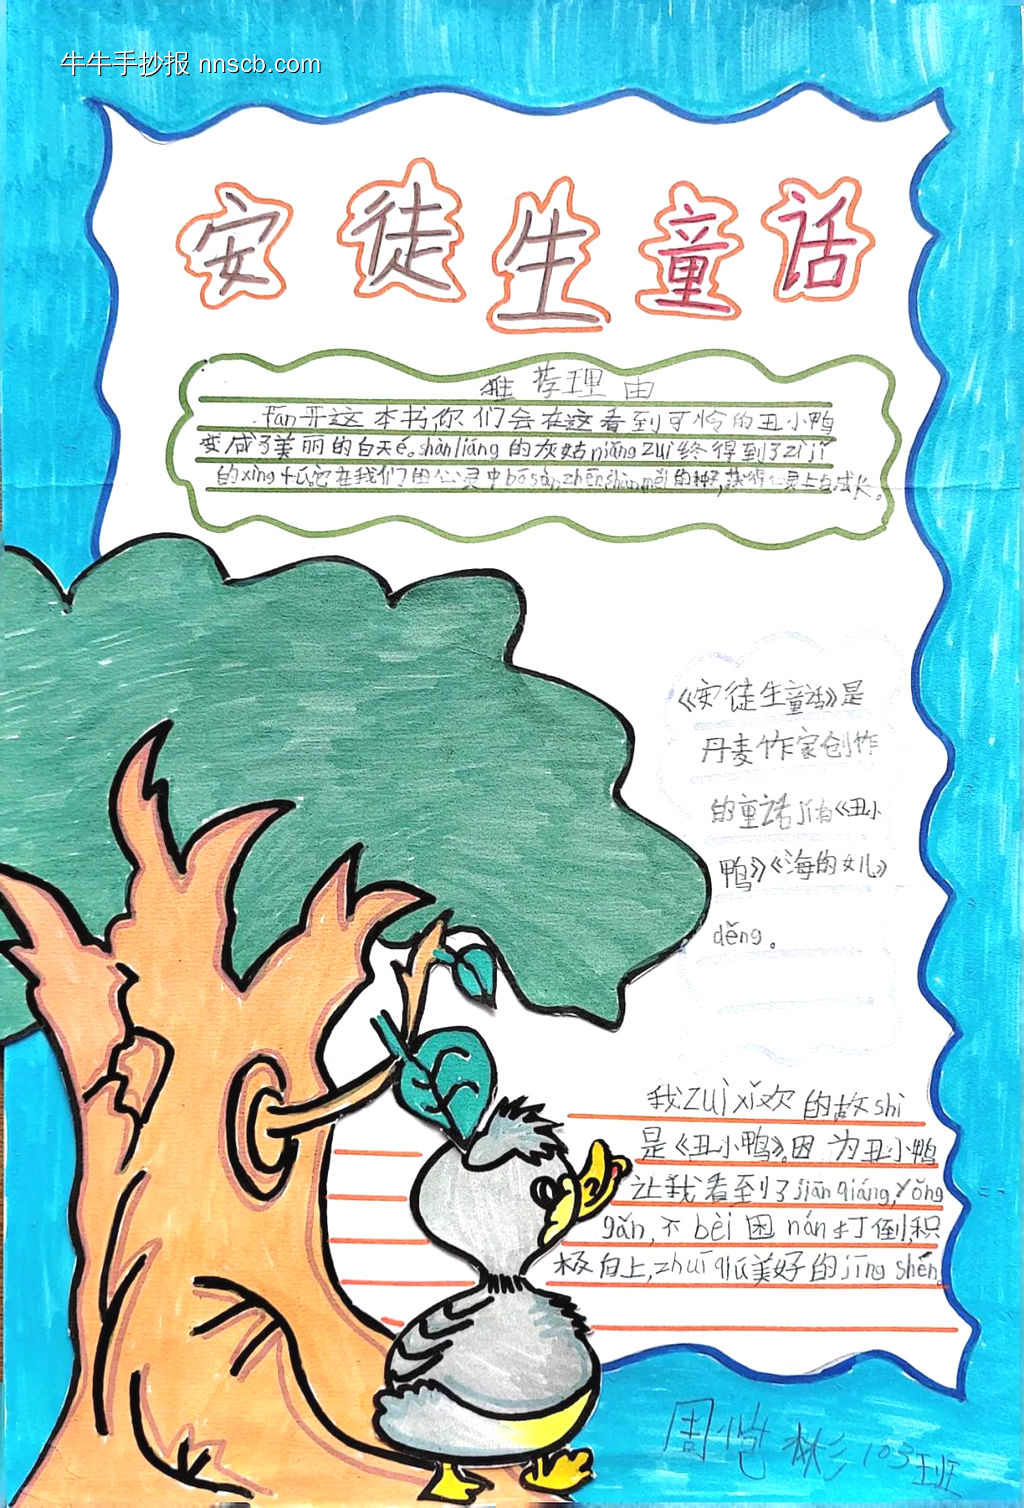 牛牛手抄报 nnscb.com
安徒生童话
推荐理由
fān开这本书,你们会在这看到可怜的丑小鸭
变成了美丽的白天é。shànliáng的灰姑niángzuì终得到了zìjǐ
的xìng 它在我们的心灵中bō zhēnshànměi的种子, 心灵上自成长。
《安徒生童话》是
丹麦作家创作
的童话jí有《丑小
鸭》《海的女儿》
děng。
我zuì xǐ欢的故shì
是《丑小鸭》。因为丑小鸭
让我看到了jiānqiáng,yǒng
gǎn,不bèi困nán打倒,积
极向上,zhuīqiú美好的jīngshén。
周恺彬 103班